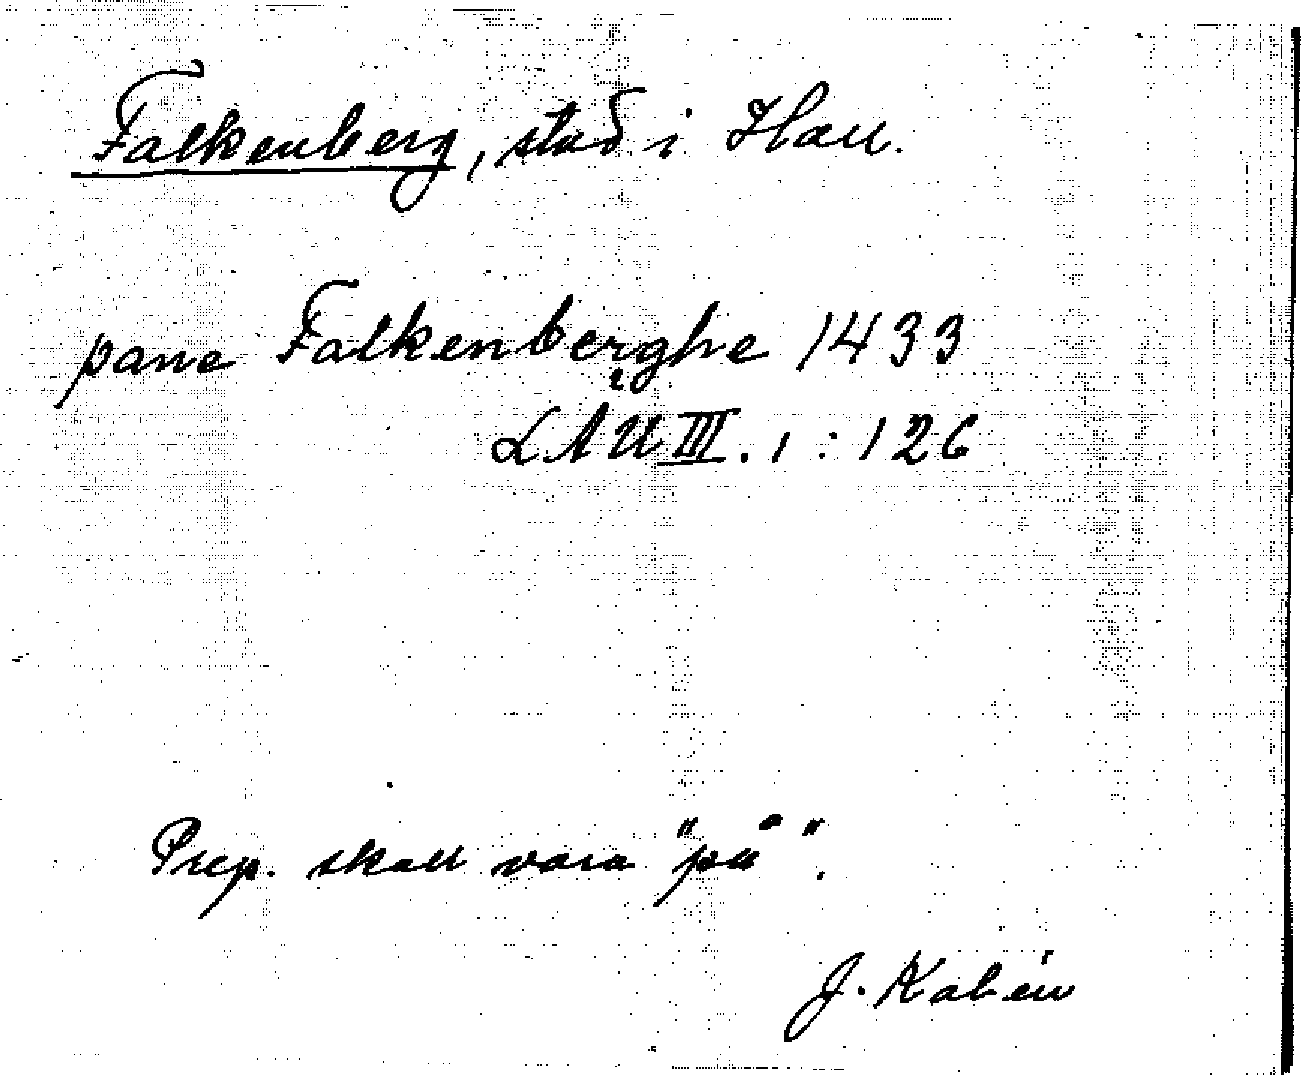 Falkenberg, stad i Hall.
pane Falkenberghe 1433
LAU III. 1 : 126
Prep. skall vara "på".
J. Kalén